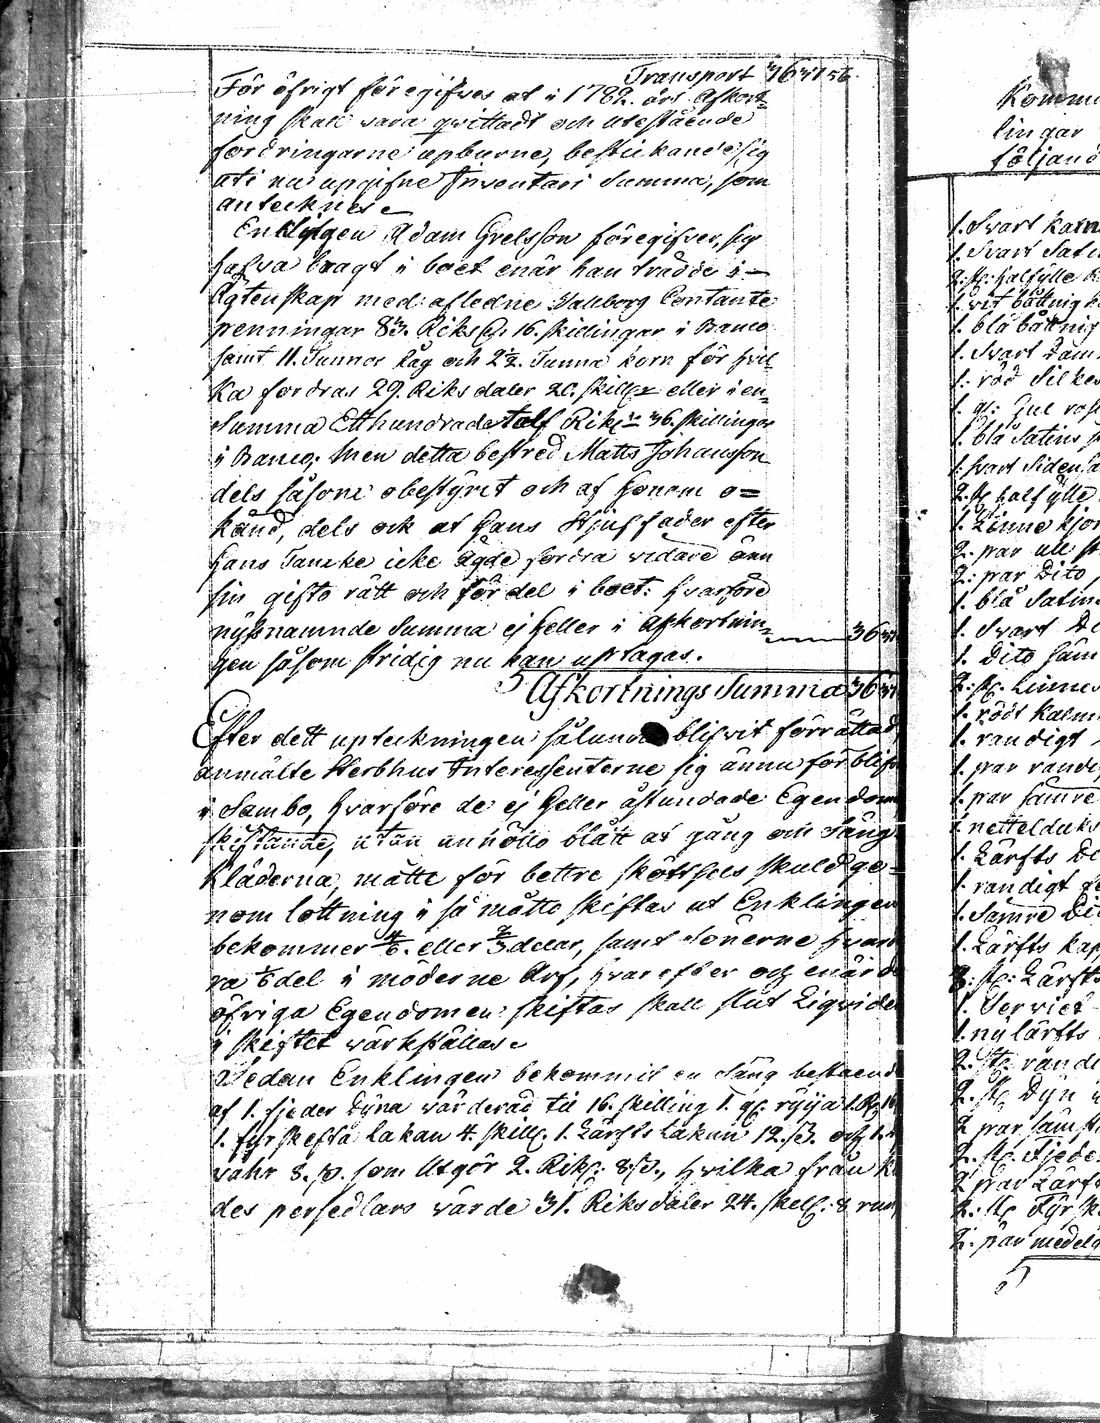 Transport 36 31 56.
För öfrigt föregifves at i 1782. års Afkort=
ning skall vara qvittadt och utestående
fordringarne upburne, bestickande sig
uti nu upgifne Inventarii Summa, som
antecknes
Enklingen Adam Grelsson föregifver, sig
hafva bragt i boet enär han trädde i
Ägtenskap med afledne Valborg Contante
penningar 83. Riksd. 16. skillingar i Banco
samt 11. Tunnor Råg och 2½ Tunna korn för hvil=
ka fordras 29. Riksdaler 20. skill. eller i en
Summa Etthundrade tolf Riksd. 36. skillingar
i Banco; Men detta bestred Matts Johansson
dels såsom obestyrct och af honom o=
känd, dels ock at hans Stjuffader efter
hans Tancke icke ägde fordra vidare änn
sin gifto rätt och fördel i boet: hvarföre
nyssnämnde Summa ej heller i afkortnin=
gen såsom stridig nu kan uptagas. 36 31
Afkortnings Summa 36 31
Efter dett upteckningen sålunda blifvit förrättad
anmälte Sterbhus Interessenterne sig ännu förblifva
i Sambo, hvarföre de ej heller åstundade Egendom
skiftande, utan anhöllo blått at gång om Säng
kläderna, måtte för bettre skötsels skuld ge=
nom lottning i så måtto skiftas at Enklingen
bekommer 4/6. eller 2/3 delar, samt Sönerne hvar
ra 1/6 del i möderne Arf, hvarefter och enär de
öfriga Egendomen skiftas skall slut Liqviden
i skiftet värkställas
Sedan Enklingen bekommit en Säng bestående
af 1. fjeder Dyna värderad til 16. skilling 1. gl. ryija 1. Rd 16
1. fyrskefta lakan 4. skill. 1. Lärfts Lakan 12. s. och 1.
vahr 8. s. som Utgör 2. Riksd. 8 s., hvilka från
des persedlars värde 31. Riksdaler 24. skill. 8 run
Komm
lingar
följand
1. Svart kalm
1. Svart Satin
2. st. halfsylte
1. vit bottnig k
1. blå bottnig
1. Svart Dam
1. röd Silkes
1. gl. Gul ros
1. blå Satins
1. Svart Siden
2. st halfsylte
1. Linne kjor
2. par ull st
2. par Dito
1. blå Satin
1. Svart De
1. Dito säm
2. st. Linnes
1. rödt kalm
1. randigt
1. par randi
1. par sämre
1. nettelduks
1. Lärfts De
1. randigt
1. Sämre Di
1. Lärfts kap
3. st. Lärfts
1. Serviet
1. ny lärfts
2. st. rande
2. st. Dyn
2 par säm
2. st. Fjeder
2 par Lärf
2. st. Fyrsk
2. par medel